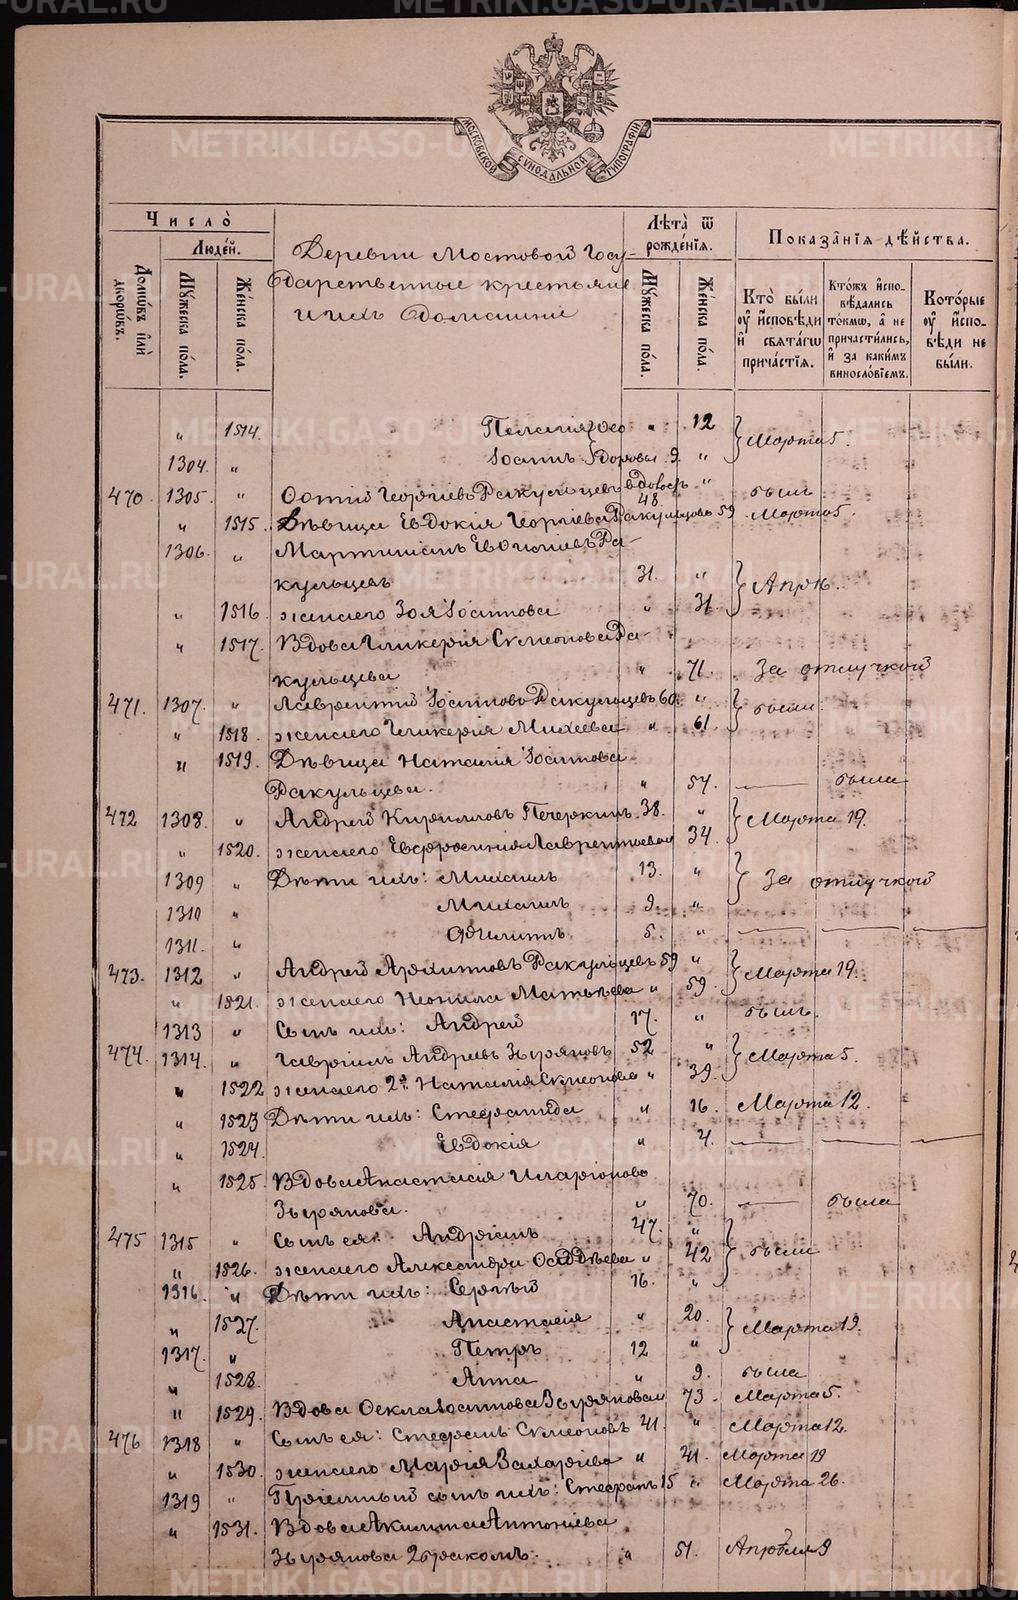 МОСКОВСКОЙ СѴНОДАЛЬНОЙ ТИПОГРАФІИ
Число̀
Людей.
Домѡвъ илѝ дворѡвъ.
Мꙋжеска пола.
Женска пола.
Деревни Мостовой Госу-
дарственные крестьяне
и ихъ домашніе
Лѣта̀ ѿ рожденїѧ.
Мꙋжеска пола.
Женска пола.
Показанїѧ дѣйства.
Кто̀ были оу҆ исповѣди и свѧтагѡ причастїѧ.
Ктожъ исповѣдались токмѡ, а не причастились, и за какимъ винословїемъ.
Которые оу҆ исповѣди не были.
„ 1514. Пелагія „ 12 Марта 5.
1304. „ Іоаннъ 9. „
470 1305. „ Фотій Георгіевъ Ракульцевъ вдовъ 48 „ былъ
„ 1515. Дѣвица Евдокія Георгіева Ракульцова 59 Марта 5.
1306. „ Мартиніанъ Ра-
кульцевъ 31. „ Апр. 16.
„ 1516. жена его Зоя Іоаннова „ 31.
„ 1517. Вдова Гликерія Симеонова Ра-
кульцева „ 71. За отлучкой
471. 1307. „ Лаврентій Іоанновъ Ракульцевъ 60. „ были
„ 1518. жена его Гликерія Михеева „ 61.
„ 1519. Дѣвица Наталія Іоаннова
Ракульцева. „ 57. — была
472 1308. „ Андрей Кирилловъ Печеркинъ 38. „ Марта 19.
„ 1520. жена его Евфросинія Лаврентьева 34.
1309 „ Дѣти ихъ: Михаилъ 13. „ За отлучкой
1310 „ Михаилъ 9. „
1311. „ Филиппъ 5. „ — — —
473. 1312 „ Андрей Архиповъ Ракульцевъ 59 „ Марта 19.
„ 1521. жена его Неонила Матвѣева „ 59.
1313 „ Сынъ ихъ: Андрей 17. „ былъ.
474. 1314. „ Гавріилъ Андреевъ Зыряновъ 52 „ Марта 5.
„ 1522 жена его 2я Наталія Симеонова „ 39.
„ 1523 Дѣти ихъ: Стефанида „ 16. Марта 12.
„ 1524. Евдокія „ 4. — — —
„ 1525. Вдова Анастасія Иларіонова
Зырянова. „ 70. — была
475 1315 „ Сынъ ея: Андріанъ 47. „ были
„ 1526. жена его Александра Фаддѣева „ 42
1316. „ Дѣти ихъ: Сергѣй 16. „
„ 1527. Анастасія „ 20. Марта 19.
1317. „ Петръ 12 „
„ 1528. Анна „ 9. была
„ 1529. Вдова Фекла Іоаннова Зырянова 73 Марта 5.
476 1318 „ Сынъ ея: Стефанъ Симеоновъ 41. „ Марта 12.
„ 1530. жена его Марія Захаріева „ 41. Марта 19
1319 „ Пріемный сынъ ихъ: Стефанъ 15 „ Марта 26.
„ 1531. Вдова Акилина Антоніева
Зырянова 2 бракомъ. „ 51. Апрѣля 9
METRIKI.GASO-URAL.RU